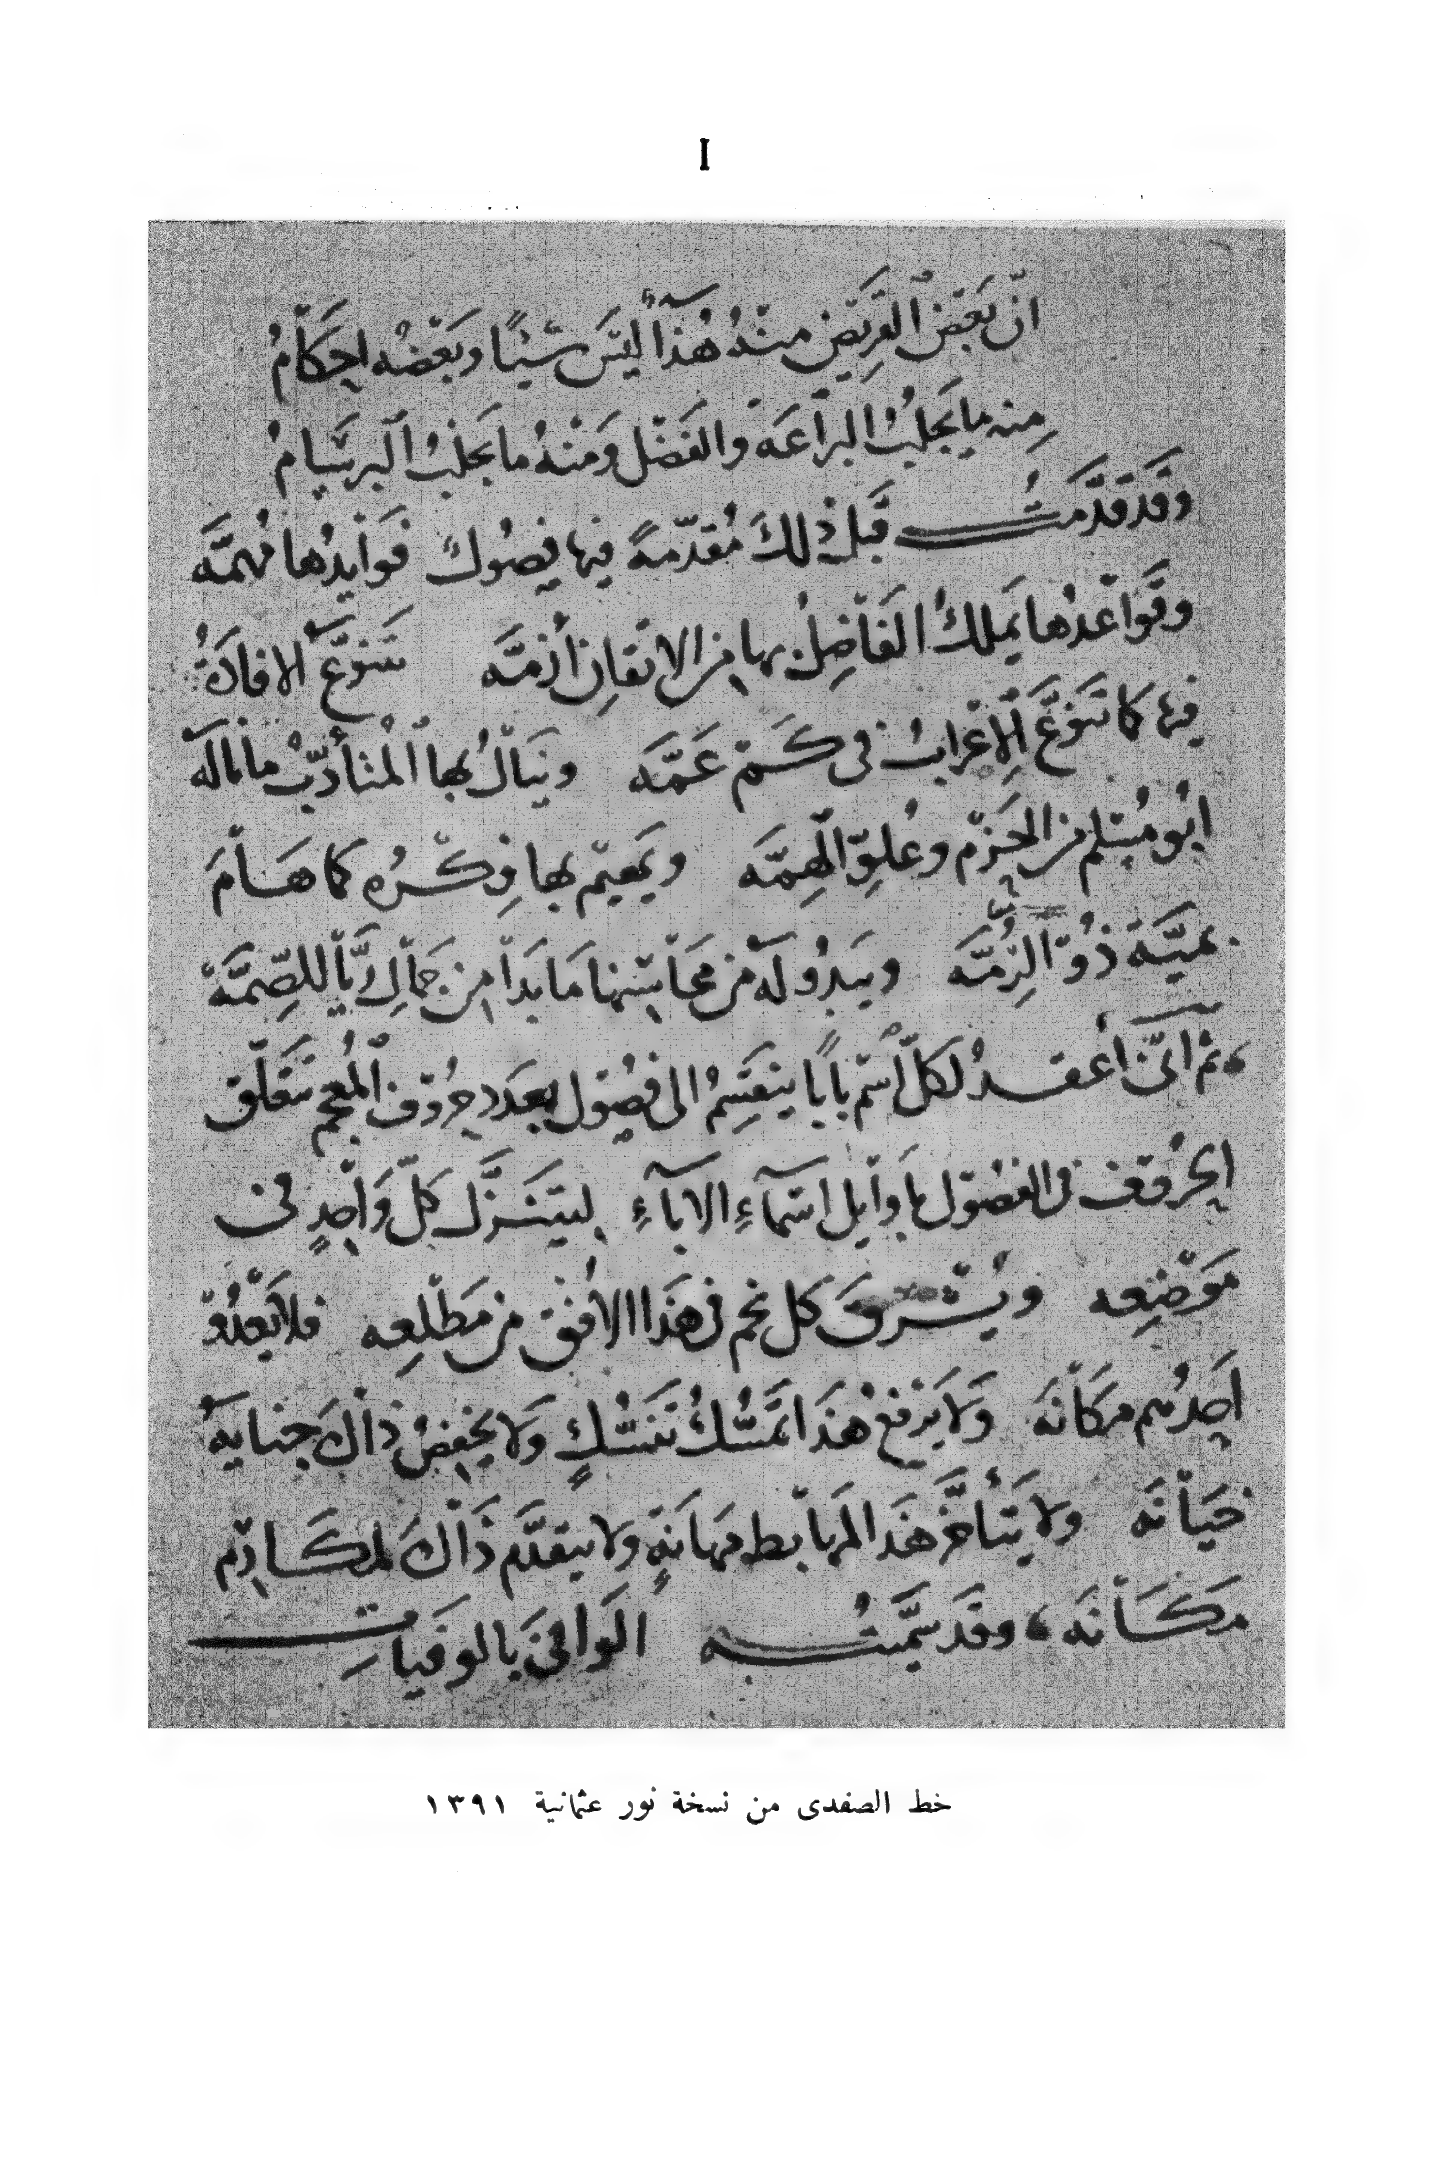 I
انّ بَعْضَ القَرِيْضِ مِنْهُ هُذَآءٌ لَيْسَ شَيْئاً وبَعْضُه احْكَامُ
مِنه ما يَجلُبُ البَرَاعَه والفَضْلَ ومِنْهُ ما يَجلُبُ البِرسَامُ
وقد قدّمتُ قَبْلَ ذلكَ مُقدّمةً فيها فُصُولٌ فَوَايدُها مُهمَّه
وقَوَاعدُها يَملكُ الفَاضِلُ بها من الاتقانِ أزِمَّه تَتنوّعُ الإفادَةُ
فيها كما تَنَوَّعَ الإعْرابُ في كَمْ عَمَّه ويَنالُ بها المُتأدّبُ ما نالَه
ابُو مُسْلمٍ من الحَزْم وعُلوّ الهِمَّه ويَهيمُ بها فِكْرُه كما هَامَ
بمَيَّةَ ذُو الرُّمَّه ويَبدُو لَه مِن مَحاسِنها مَا بَدَا مِن جَمَالِ رَيَّا للصِّمَّة
ثم انّى أعقدُ لكلّ اسْمٍ بَاباً يَنْقَسِمُ الى فُصُولٍ بعَدَدِ حُرُوْفِ المُعجَمِ تتعَلّق
الحُرُوْف في الفصُوْل بأوَايل اسْمَآءِ الآبَآءِ لِيَتنَزَّلَ كلّ وَاحِدٍ في
مَوْضِعِه ويُشرقَ كل نَجمٍ في هَذا الافُق مِن مَطْلَعِه فلا يَعْدُوْ
أحَدُهم مَكَانَه وَلا يَرفعُ هَذا تَمَسُّكُ تَنَسُّكٍ وَلا يَخفِضُ ذاكَ جِنايةُ
خيَانَه ولا يَتأخّرَ هَذا لمهَابطِ مَهانةٍ ولا يتقدَّم ذَاكَ لمكَارمِ
مكَانَه، وقد سمّيتُه الوَافي بالوفيات
خط الصفدى من نسخة نور عثمانية ١٣٩١